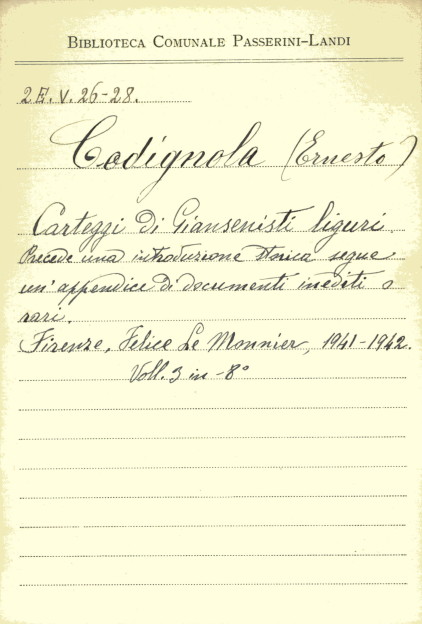 BIBLIOTECA COMUNALE PASSERINI-LANDI
2E. V. 26-28.
Codignola (Ernesto)
Carteggi di Giansenisti liguri
Precede una introduzione storica segue
un'appendice di documenti inediti o
rari.
Firenze, Felice Le Monnier, 1941-1942.
Voll. 3 in-8°